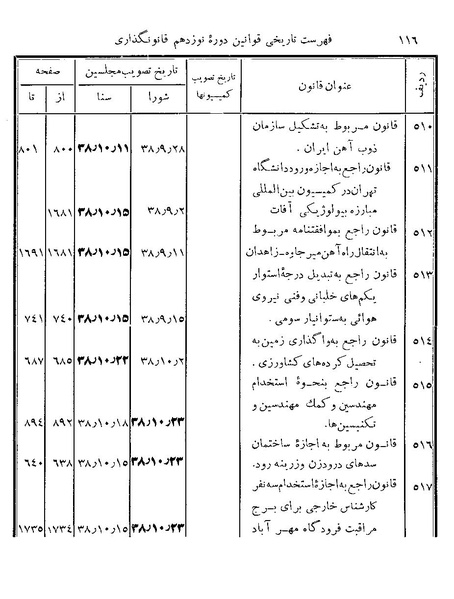 ۱۱۶ فهرست تاریخی قوانین دورهٔ نوزدهم قانونگذاری
ردیف عنوان قانون تاریخ تصویب کمیسیونها تاریخ تصویب مجلسین صفحه
شورا سنا از تا
۵۱۰ قانون مربوط به تشکیل سازمان
ذوب آهن ایران . ۳۸٫۹٫۲۸ ۳۸٫۱۰٫۱۱ ۸۰۰ ۸۰۱
۵۱۱ قانون راجع به اجازه ورود دانشگاه
تهران در کمیسیون بین‌المللی
مبارزه بیولوژیکی آفات ۳۸٫۹٫۲ ۳۸٫۱۰٫۱۵ ۱۶۸۱
۵۱۲ قانون راجع بموافقتنامه مربوط
به انتقال راه آهن میرجاوه-زاهدان ۳۸٫۹٫۱۱ ۳۸٫۱۰٫۱۵ ۱۶۸۱ ۱۶۹۱
۵۱۳ قانون راجع به تبدیل درجهٔ استوار
یکم‌های خلبانی وفنی نیروی
هوائی به ستوانیار سومی . ۳۸٫۹٫۱۵ ۳۸٫۱۰٫۱۵ ۷۴۰ ۷۴۱
۵۱۴ قانون راجع به واگذاری زمین به
تحصیل کرده‌های کشاورزی . ۳۸٫۱۰٫۲ ۳۸٫۱۰٫۲۲ ۶۸۵ ۶۸۷
۵۱۵ قانون راجع بنحوهٔ استخدام
مهندسین و کمك مهندسین و
تکنیسین‌ها. ۳۸٫۱۰٫۲۳ ۳۸٫۱۰٫۱۸ ۸۹۲ ۸۹۴
۵۱۶ قانون مربوط به اجازهٔ ساختمان
سدهای درودزن وزرینه رود. ۳۸٫۱۰٫۲۳ ۳۸٫۱۰٫۱۵ ۶۳۸ ۶۴۰
۵۱۷ قانون راجع به اجازهٔ استخدام سه نفر
کارشناس خارجی برای برج
مراقبت فرودگاه مهرآباد ۳۸٫۱۰٫۲۳ ۳۸٫۱۰٫۱۵ ۱۷۳۴ ۱۷۳۵